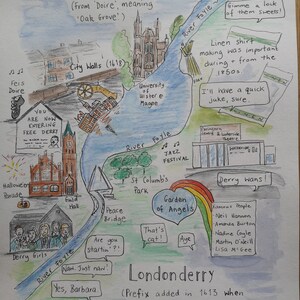 (from 'Doire', meaning
'Oak Grove')
River Foyle
Gimme a lock
of them sweets!
Linen Shirt
making was important
during + from the
1850s
City Walls (1618)
Feis
Doire
University
of Ulster @
Magee
I'll have a quick
juke, sure.
YOU
ARE NOW
ENTERING
FREE DERRY
River Foyle
JAZZ
FESTIVAL
Derry Wans!
St Columb's
Park
Halloween
Parade
Guild
Hall
Garden
of Angels
Peace
Bridge
Nadine Coyle
Martin O'Neill
Lisa McGee
Amanda Burton
That's
cat!
Aye
Derry Girls
River Foyle
Are you
startin'?
Now. Just now!
Yes, Barbara.
Londonderry
(Prefix added in 1613 when